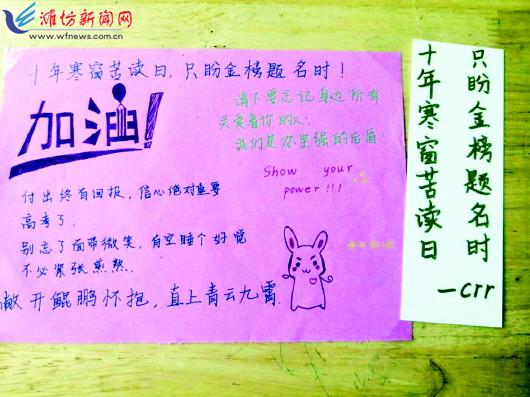 潍坊新闻网
www.wfnews.com.cn
十年寒窗苦读日,只盼金榜题名时!
加油!
请不要忘记身边所有
关爱着你的人;
我们是你坚强的后盾!
Show your
power!!!
付出终有回报,信心绝对重要
高考了
别忘了面带微笑,有空睡个好觉
不必紧张煎熬.
敞开鲲鹏怀抱,直上青云九霄
只盼金榜题名时
十年寒窗苦读日
—crr